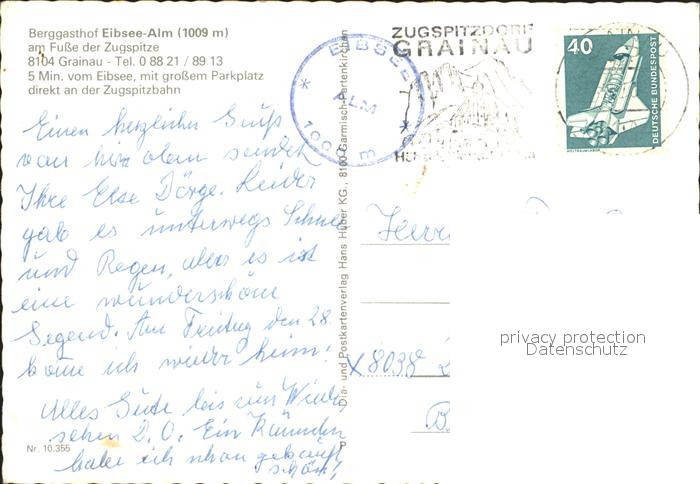 Berggasthof Eibsee-Alm (1009 m)
am Fuße der Zugspitze
8104 Grainau - Tel. 0 88 21 / 89 13
5 Min. vom Eibsee, mit großem Parkplatz
direkt an der Zugspitzbahn
Einen herzlichen Gruß
von hier oben sendet
Ihre Else Dörge. Leider
gab es unterwegs Schnee
und Regen, aber es ist
eine wunderschöne
Gegend. Am Freitag den 28.
komme ich wieder heim!
Alles Gute bis zum Wieder
sehen D. O. Ein
habe ich schon gekauft
schön!
Nr. 10.355
Dia- und Postkartenverlag Hans Huber KG., 8100 Garmisch-Partenkirchen
EIBSEE
ALM
1009 m
ZUGSPITZDORF
GRAINAU
40
DEUTSCHE BUNDESPOST
WELTRAUMLABOR
Herrn
X 8038
privacy protection
Datenschutz